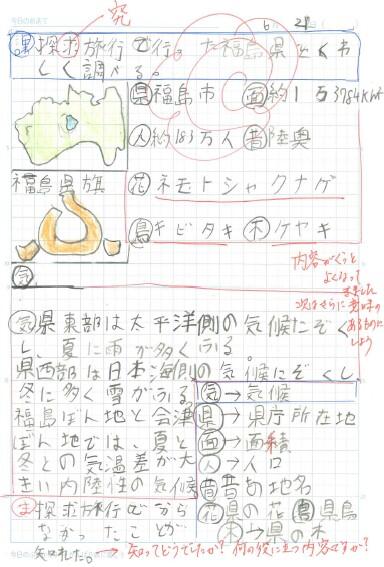 今日のめあて
6 21
究
課 探求旅行で行った福島県をくわ
しく調べる。
県 福島市 面 約1万3784km²
人 約183万人 昔 陸奥
福島県旗
花 ネモトシャクナゲ
鳥 キビタキ 木 ケヤキ
気
内容がぐっと
よくなって
きました
次はさらに意味の
あるものに
しよう
気 県東部は太平洋側の気候にぞく
し、夏に雨が多くふる。
県西部は日本海側の気候にぞくし
冬に多く雪がふる。
福島ぼん地と会津
ぼん地では、夏と
冬との気温差が大
きい内陸性の気候
気→気候
県→県庁所在地
面→面積
人→人口
昔 昔の地名
花 県の花 鳥 県鳥
木→県の木
ま 探求旅行でわから
なかったことが
知れた。
→知ってどうでしたか？何の役に立つ内容ですか？